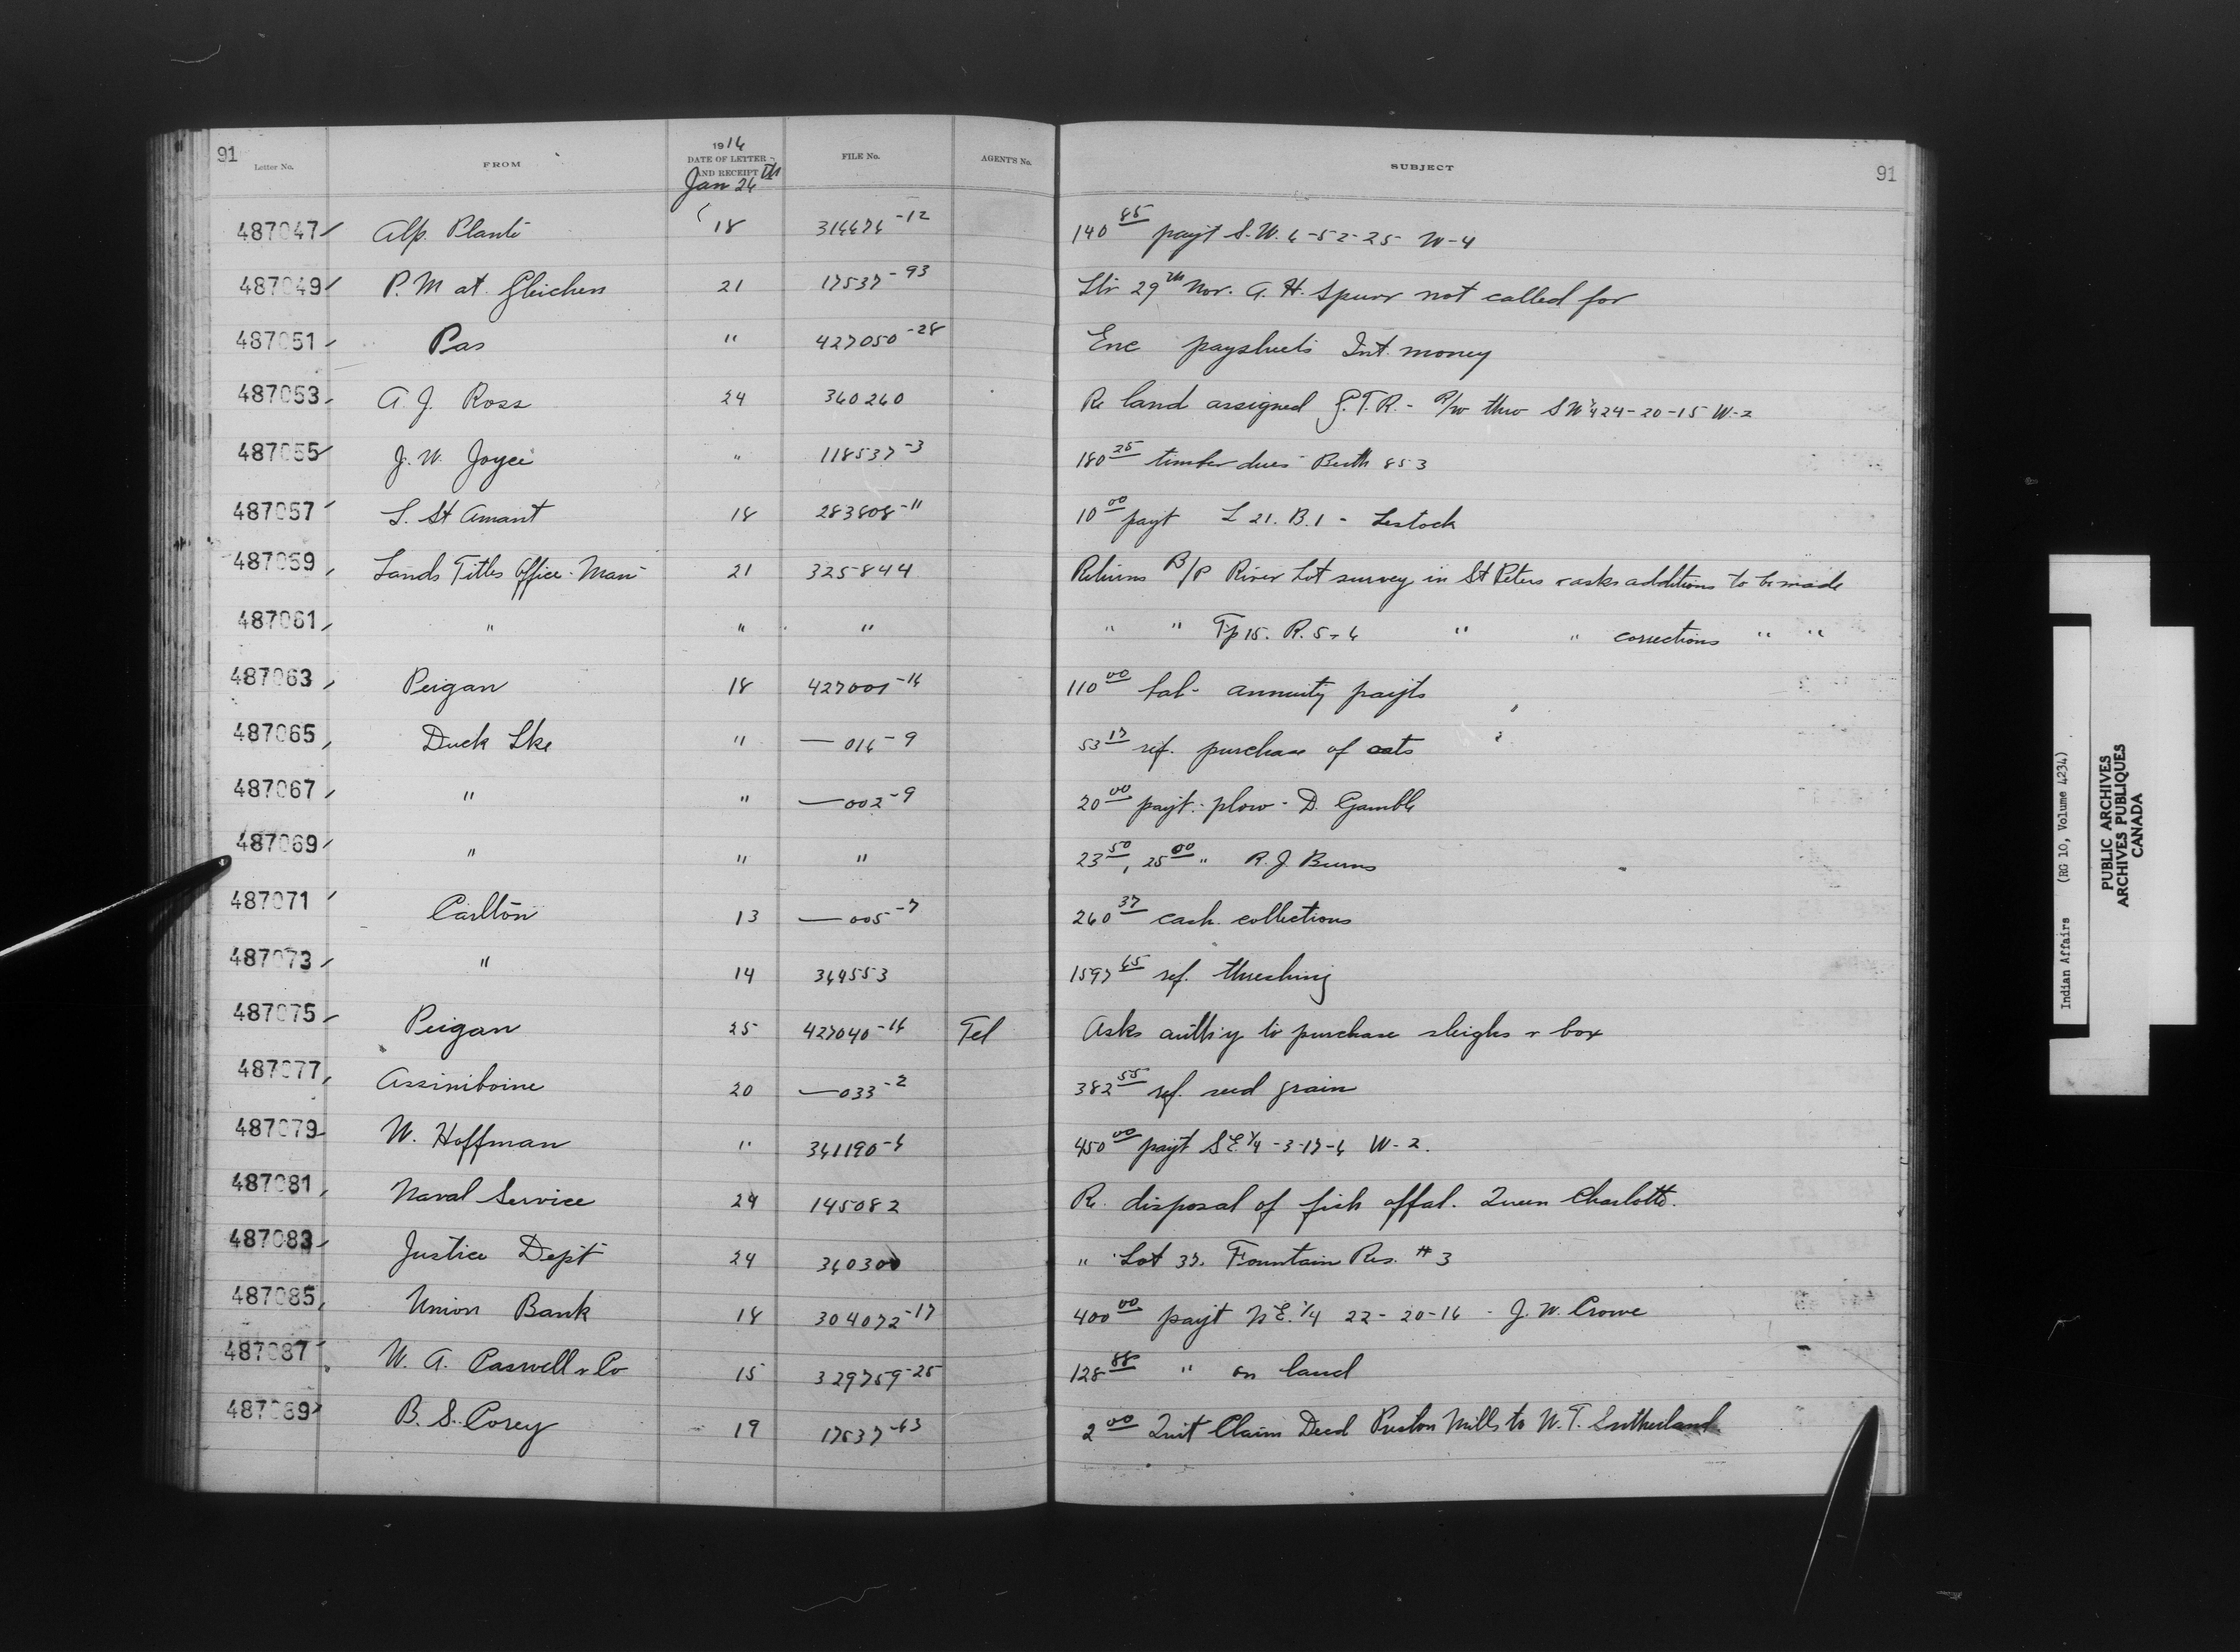 91
Letter No. FROM 1916 DATE OF LETTER AND RECEIPT FILE No. AGENT'S No. SUBJECT 91
Jan 26th
487047 Alp. Planté 18 314474-12 140 85 payt S.W. 6-52-25 W-4
487049 P.M at Gleichen 21 17537-93 Ltr 29th Nov. A. H. Spurr not called for
487051 Pas " 427050-28 Enc paysheets Int. money
487053 A. J. Ross 24 360260 Re land assigned G.T.R. - R/w thro SW 1/4 24-20-15 W-2
487055 J. W. Joyce " 118537-3 180 25 timber dues Berth 853
487057 L. St Amant 18 283808-11 10 00 payt L 21. B.1 - Lestock
487059 Lands Titles Office - Man 21 325844 Returns B/P River Lot survey in St Peters & asks additions to be made
487061 " " " " " Tp 15. R. 5 & 6 " " corrections " "
487063 Peigan 18 427001-16 110 00 bal - annuity payts
487065 Duck Lke " —016-9 53 17 ref. purchase of oats
487067 " " —002-9 20 00 payt. plow - D. Gamble
487069 " " " 23 50, 25 00 " R. J. Burns
487071 Carlton 13 —005-7 260 37 cash collections
487073 " 14 349553 1597 65 ref. threshing
487075 Peigan 25 427040-16 Tel Asks auth'y to purchase sleighs & box
487077 Assiniboine 20 —033-2 382 55 ref. seed grain
487079 W. Hoffman " 361190-6 450 00 payt SE 1/4 -3-17-6 W-2.
487081 Naval Service 24 145082 Re disposal of fish offal. Queen Charlotte.
487083 Justice Dept 24 360300 " Lot 37. Fountain Res. #3
487085 Union Bank 18 304072-17 400 00 payt N.E. 1/4 22-20-16 - J. W. Crowe
487087 W. A. Caswell & Co 15 329759-25 128 88 " on land
487089 B. S. Corey 19 17537-63 2 00 Quit Claim Deed Preston Mills to W. T. Sutherland
Indian Affairs (RG 10, Volume 4234)
PUBLIC ARCHIVES
ARCHIVES PUBLIQUES
CANADA